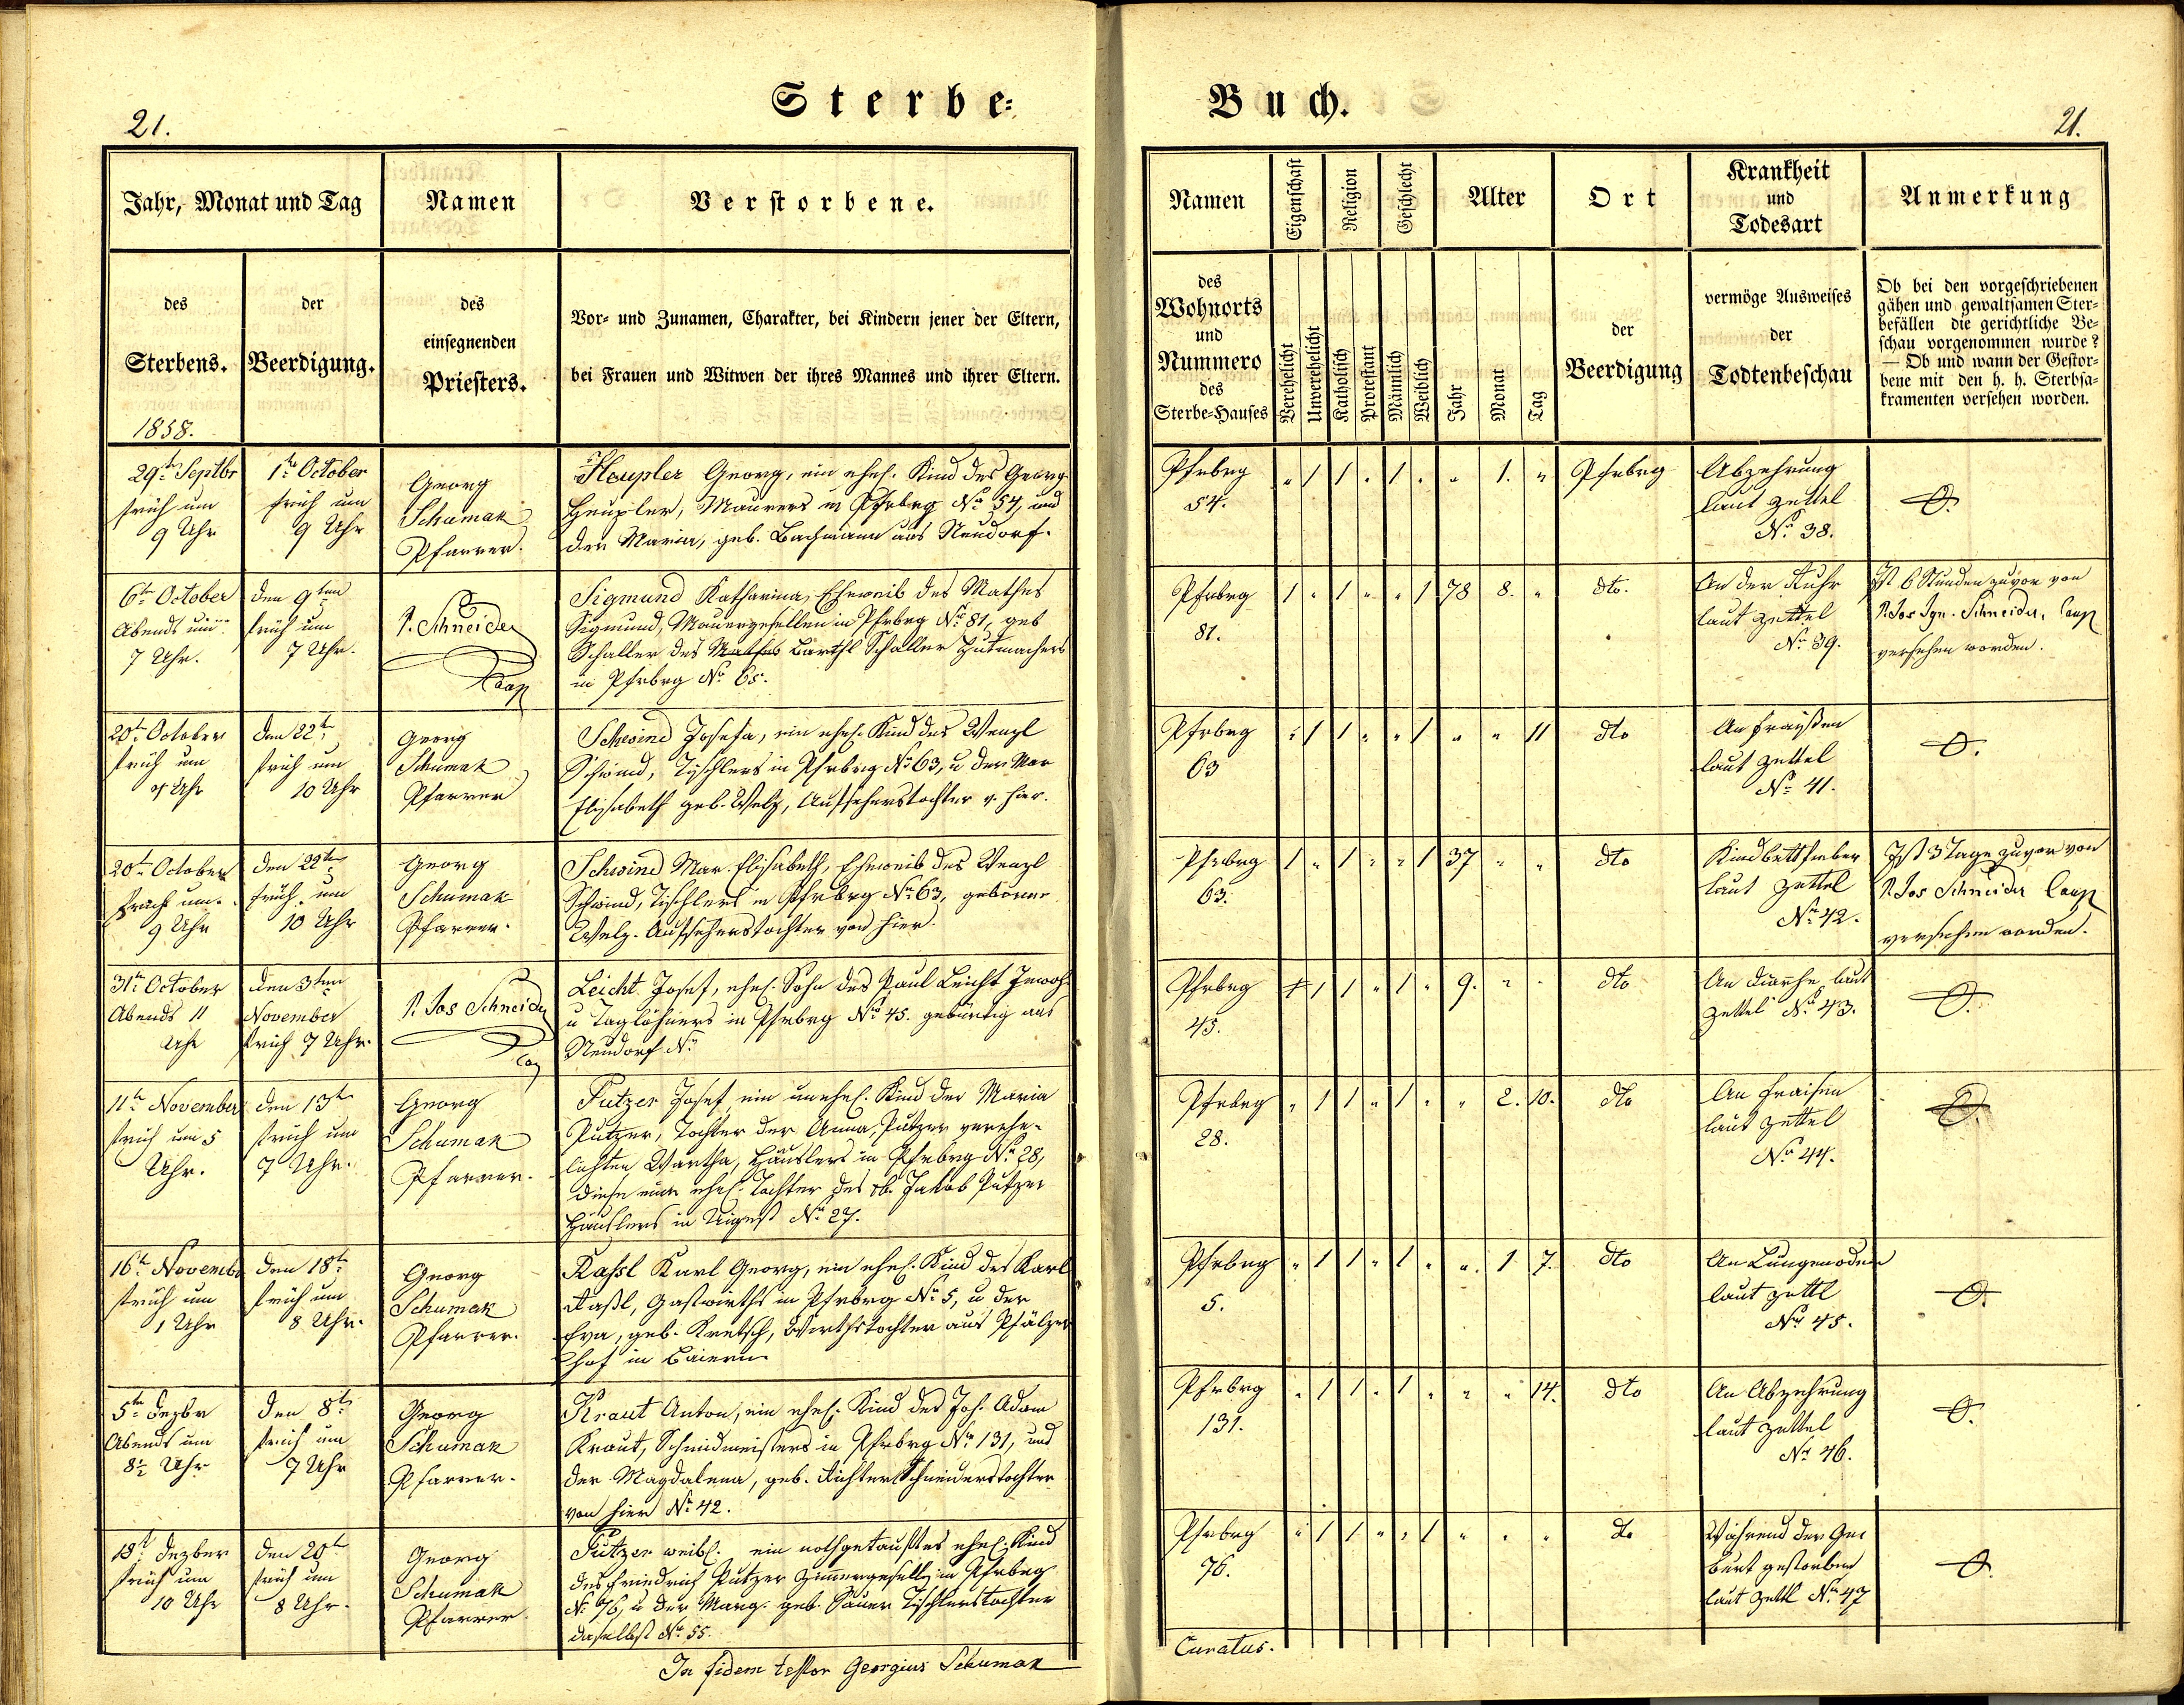 Sterbe-
Buch.
21.
21.
Jahr, Monat und Tag
Namen
Verstorbene.
des
Sterbens.
der
Beerdigung.
des
einsegnenden
Priesters.
Vor- und Zunamen, Charakter, bei Kindern jener der Eltern,
bei Frauen und Witwen der ihres Mannes und ihrer Eltern.
Namen
Eigenschaft
Religion
Geschlecht
Alter
Ort
Krankheit
und
Todesart
Anmerkung
des
Wohnorts
und
Nummero
des
Sterbe-Hauses
Verehelicht
Unverehelicht
Katholisch
Protestant
Männlich
Weiblich
Jahr
Monat
Tag
der
Beerdigung
vermöge Ausweises
der
Todtenbeschau
Ob bei den vorgeschriebenen
gähen und gewaltsamen Ster-
befällen die gerichtliche Be-
schau vorgenommen wurde?
— Ob und wann der Gestor-
bene mit den h. h. Sterbsa-
kramenten versehen worden.
1858.
29t Septbr
früh um
9 Uhr
1t October
früh um
9 Uhr
Georg
Schumak
Pfarrer.
Heupler Georg, ein ehel. Kind des Georg
Heupler, Maurers in Pfrbrg No 54, und
der Maria, geb. Bachmann aus Neudorf.
Pfrbrg
54.
" 1 1 " 1 " " 1. "
Pfrbrg
Abzehrung
laut Zettel
No 38.
6t October
Abends um
7 Uhr.
den 9ten
früh um
7 Uhr.
P. Schneider
Coop
Sigmund Katharina, Eheweib des Mathes
Sigmund, Maurergesellen in Pfrbrg No 81, geb
Schaller des Mathes Barthl Schaller Hutmachers
in Pfrbrg No 65.
Pfrbrg
81.
1 " 1 " " 1 78 8. "
dto.
An der Ruhr
laut Zettel
No 39.
Ist 6 Stunden zuvor von
P. Jos Ign. Schneider, Coop
versehen worden.
20t October
früh um
Uhr
den 22t
früh um
10 Uhr
Georg
Schumak
Pfarrer
Schwind Josefa, ein ehel. Kind des Wenzl
Schwind, Tischlers in Pfrbrg No 63, u der Mar
Elisabeth geb. Welz, Aufseherstochter v. hier.
Pfrbrg
63
" 1 1 " " 1 " " 11
dto
An Fraißen
laut Zettel
No 41.
20t October
früh um
9 Uhr
den 22t
früh um
10 Uhr
Georg
Schumak
Pfarrer.
Schwind Mar. Elisabeth, Eheweib des Wenzl
Schwind, Tischlers in Pfrbrg No 63, geborne
Welz. Aufseherstochter von hier.
Pfrbrg
63.
1 " 1 " " 1 37 " "
dto
Kindbettfieber
laut Zettel
No 42.
Ist 3 Tage zuvor von
P. Jos Schneider Coop
versehen worden.
31t October
Abends 11
Uhr
den 3ten
November
früh 7 Uhr.
P. Jos Schneider
Coop
Leicht Josef, ehel. Sohn des Paul Leicht Inwoh
u Taglöhners in Pfrbrg No 45. gebürtig aus
Neudorf No
Pfrbrg
45.
1 1 " 1 " 9. " "
dto
An Diarrhe laut
Zettel No 43.
11t November
früh um 5
Uhr.
den 13t
früh um
7 Uhr.
Georg
Schumak
Pfarrer.
Putzer Josef, ein unehel. Kind der Maria
Putzer, Tochter der Anna Putzer verehe-
lichten Wartha, Häuslers in Pfrbrg No 28,
diese eine ehel. Tochter des Jakob Putzer
Häuslers in No 27.
Pfrbrg
28.
" 1 1 " 1 " " 2. 10.
dto
An Fraisen
laut Zettel
No 44.
16t Novemb
früh um
1 Uhr
den 18t
früh um
8 Uhr.
Georg
Schumak
Pfarrer.
Kaßl Karl Georg, ein ehel. Kind des Karl
Kaßl, Gastwirths in Pfrbrg No 5, u der
Eva, geb. Kretsch, Wirthstochter aus Pfälzer
hof in Baiern.
Pfrbrg
5.
" 1 1 " 1 " " 1 7.
dto
An Lungenödem
laut Zettl
No 45.
5t Dezbr
Abends um
8½ Uhr
den 8t
früh um
7 Uhr
Georg
Schumak
Pfarrer.
Kraut Anton, ein ehel. Kind des Joh. Adam
Kraut, Schmidmeisters in Pfrbrg No 131, und
der Magdalena, geb. Richter Schneiderstochter
von hier No 42.
Pfrbrg
131.
" 1 1 " 1 " " " 14.
dto
An Abzehrung
laut Zettel
No 46.
18t Dezber
früh um
10 Uhr
den 20t
früh um
8 Uhr.
Georg
Schumak
Pfarrer
Putzer weibl. ein nothgetauftes ehel. Kind
des Friedrich Putzer Zimmergesell, in Pfrbrg
No 76, u der Marg. geb. Sauer Tischlerstochter
daselbst No 55.
Pfrbrg
76.
" 1 1 " " 1 " " "
do
Während der Ge
burt gestorben
laut Zettl No 47
In fidem testor Georgius Schumak
Curatus.